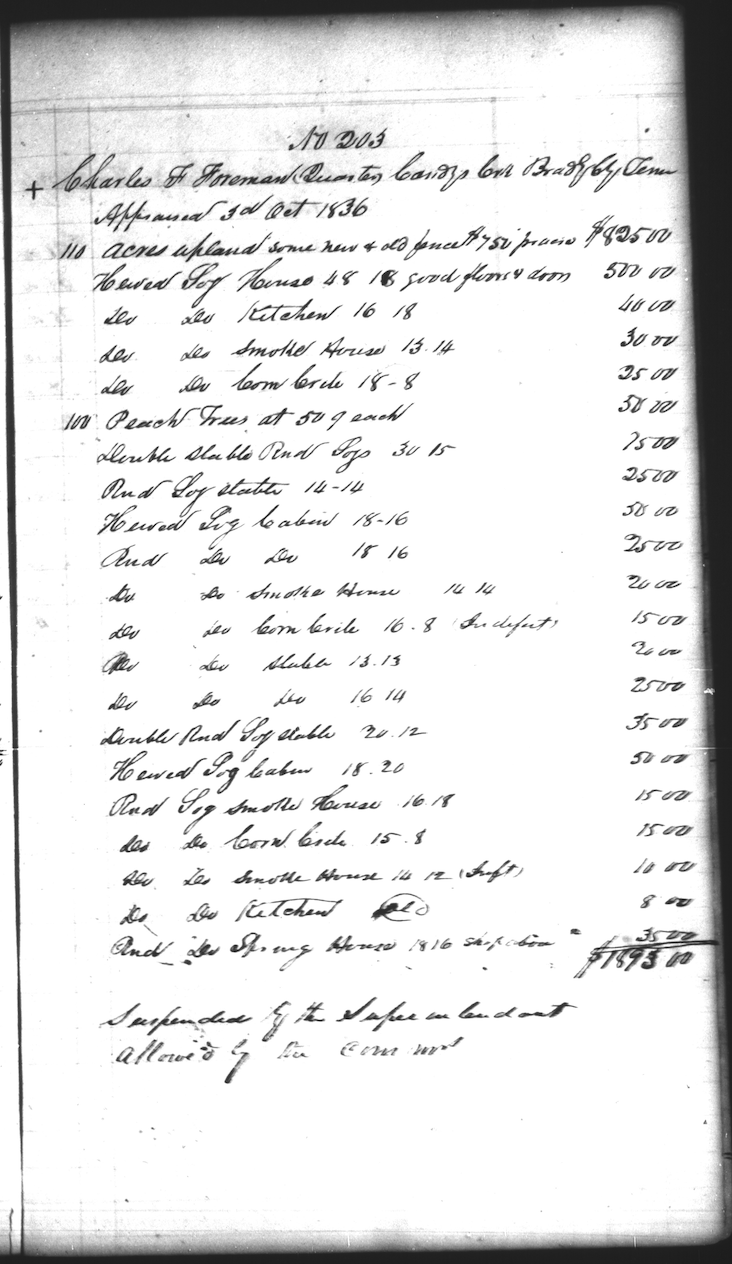 No 203
+ Charles F Foreman (Quarter) Candys Crk Bradly Cty Tenn
Appraised 3d Oct 1836
110 acres upland some new & old fence $7 50 pr acre $825 00
Hewed Log House 48 18 good floors & doors 500 00
Do Do Kitchen 16 18 40 00
Do Do Smoke House 13.14 30 00
Do Do Corn Crib 18-8 25 00
100 Peach Trees at 50 ¢ each 50 00
Double Stable Rnd Logs 30 15 75 00
Rnd Log Stable 14-14 25 00
Hewed Log Cabin 18-16 50 00
Rnd Do Do 18 16 25 00
Do Do Smoke House 14 14 20 00
Do Do Corn Crib 16.8 (Indifert) 15 00
Do Do Stable 13.13 20 00
Do Do Do 16 14 25 00
Double Rnd Log Stable 20.12 35 00
Hewed Log Cabin 18.20 50 00
Rnd Log Smoke House 16 18 15 00
Do Do Corn Crib 15.8 15 00
Do Do Smoke House 14 12 (Inft) 10 00
Do Do Kitchen old 8 00
Rnd Do Spring House 18 16 shop above " 35 00
$1893 00
Suspended by the Superintendent
Allowed by the Commrs